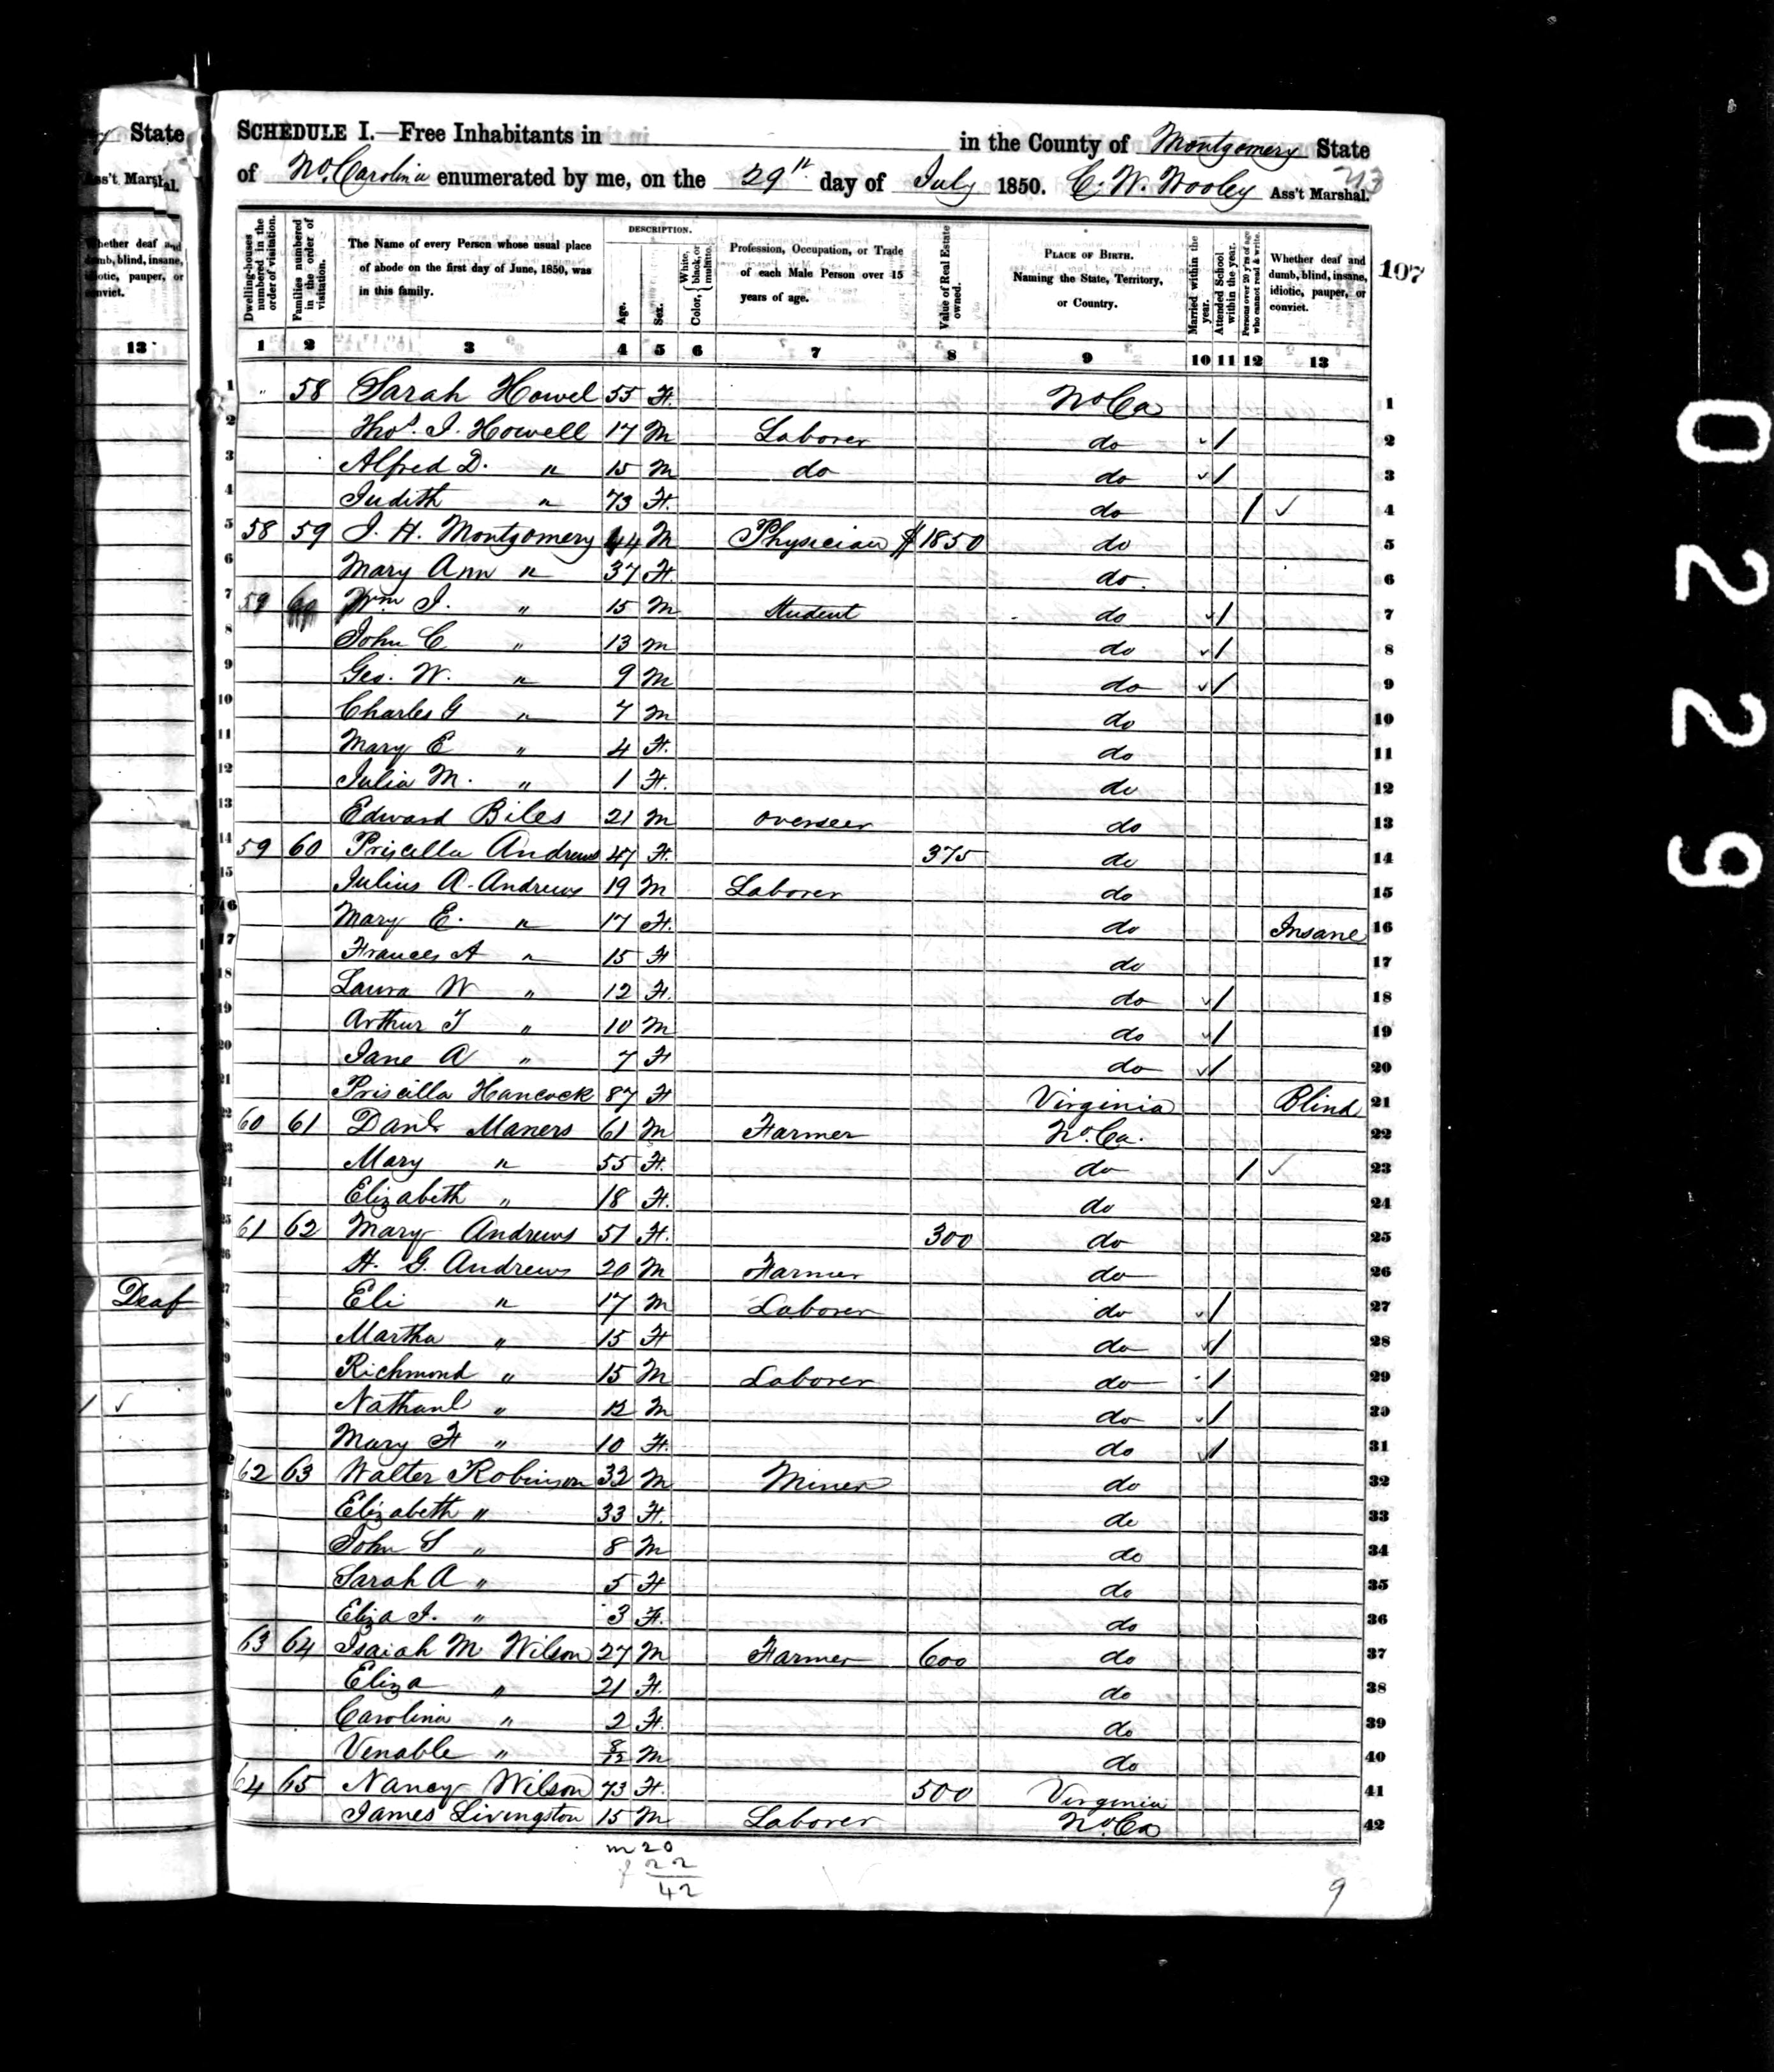 State
Ass't Marshal.
Whether deaf and
dumb, blind, insane,
idiotic, pauper, or
convict.
13
Deaf
/ ✓
SCHEDULE I.—Free Inhabitants in in the County of Montgomery State
of No. Carolina enumerated by me, on the 29th day of July 1850. C. W. Wooley Ass't Marshal.
213
107
Dwelling-houses numbered in the order of visitation.
Families numbered in the order of visitation.
The Name of every Person whose usual place of abode on the first day of June, 1850, was in this family.
DESCRIPTION.
Age.
Sex.
Color, { White, black, or mulatto.
Profession, Occupation, or Trade of each Male Person over 15 years of age.
Value of Real Estate owned.
PLACE OF BIRTH. Naming the State, Territory, or Country.
Married within the year.
Attended School within the year.
Persons over 20 y'rs of age who cannot read & write.
Whether deaf and dumb, blind, insane, idiotic, pauper, or convict.
1 2 3 4 5 6 7 8 9 10 11 12 13
1 " 58 Sarah Howel 55 F. No Ca 1
2 Thos. J. Howell 17 M Laborer do ✓ / 2
3 Alfred D. " 15 M do do ✓ / 3
4 Judith " 73 F. do / ✓ 4
5 58 59 J. H. Montgomery 44 M Physician $1850 do 5
6 Mary Ann " 37 F. do. 6
7 59 60 Wm J. " 15 M Student do ✓ / 7
8 John C " 13 M do ✓ / 8
9 Geo. W. " 9 M do ✓ / 9
10 Charles G " 7 M do 10
11 Mary E " 4 F. do 11
12 Julia M. " 1 F. do 12
13 Edward Biles 21 M overseer do 13
14 59 60 Priscilla Andrews 47 F. 375 do 14
15 Julius A. Andrews 19 M Laborer do 15
16 Mary E. " 17 F. do Insane 16
17 Frances A " 15 F do 17
18 Laura W " 12 F. do ✓ / 18
19 Arthur T " 10 M do ✓ / 19
20 Jane A " 7 F do ✓ / 20
21 Priscilla Hancock 87 F Virginia Blind 21
22 60 61 Danl. Maners 61 M Farmer No. Ca. 22
23 Mary " 55 F. do / ✓ 23
24 Elizabeth " 18 F. do 24
25 61 62 Mary Andrews 51 F. 300 do 25
26 H. G. Andrews 20 M Farmer do 26
27 Eli " 17 M Laborer do ✓ / 27
28 Martha " 15 F do ✓ / 28
29 Richmond " 15 M Laborer do / 29
30 Nathanl " 12 M do ✓ / 30
31 Mary F " 10 F. do ✓ / 31
62 63 Walter Robinson 32 M Miner do 32
Elizabeth " 33 F. do 33
John S " 8 M do 34
Sarah A " 5 F do 35
Eliza J. " 3 F. do 36
63 64 Isaiah M Wilson 27 M Farmer 600 do 37
Eliza " 21 F. do 38
Carolina " 2 F. do 39
Venable " 8/12 M do 40
64 65 Nancy Wilson 73 F. 500 Virginia 41
James Livingston 15 M Laborer No. Ca 42
m 20
f 22
42
9
0229